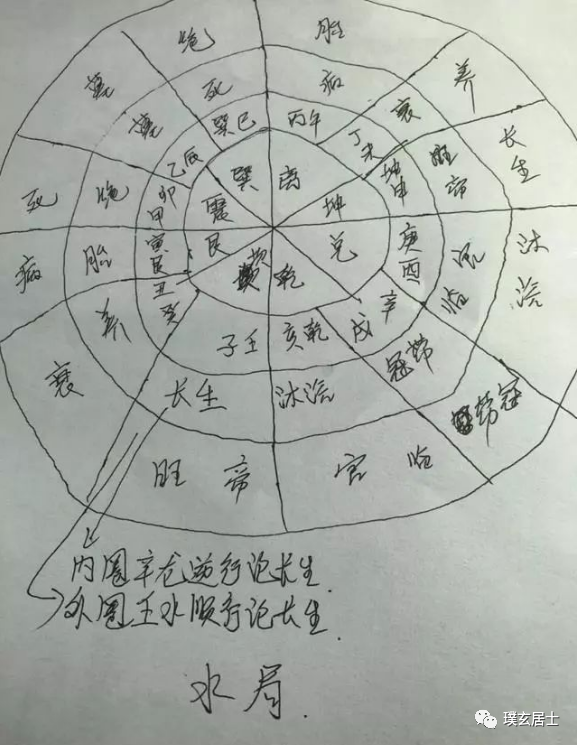 绝 胎
墓 死 病 养
墓 巽巳 丙午 衰 长生
乙辰 丁未 旺帝
死 绝 卯甲 巽 离 坤申
震 坤
病 胎 寅艮 艮 兑 庚酉 沐浴
丑癸 乾
养 辛戌
衰 子壬 亥乾 冠带
长生 沐浴 带冠
旺帝 官临
内圈辛龙逆行论长生
外圈壬水顺行论长生.
水局.
璞玄居士